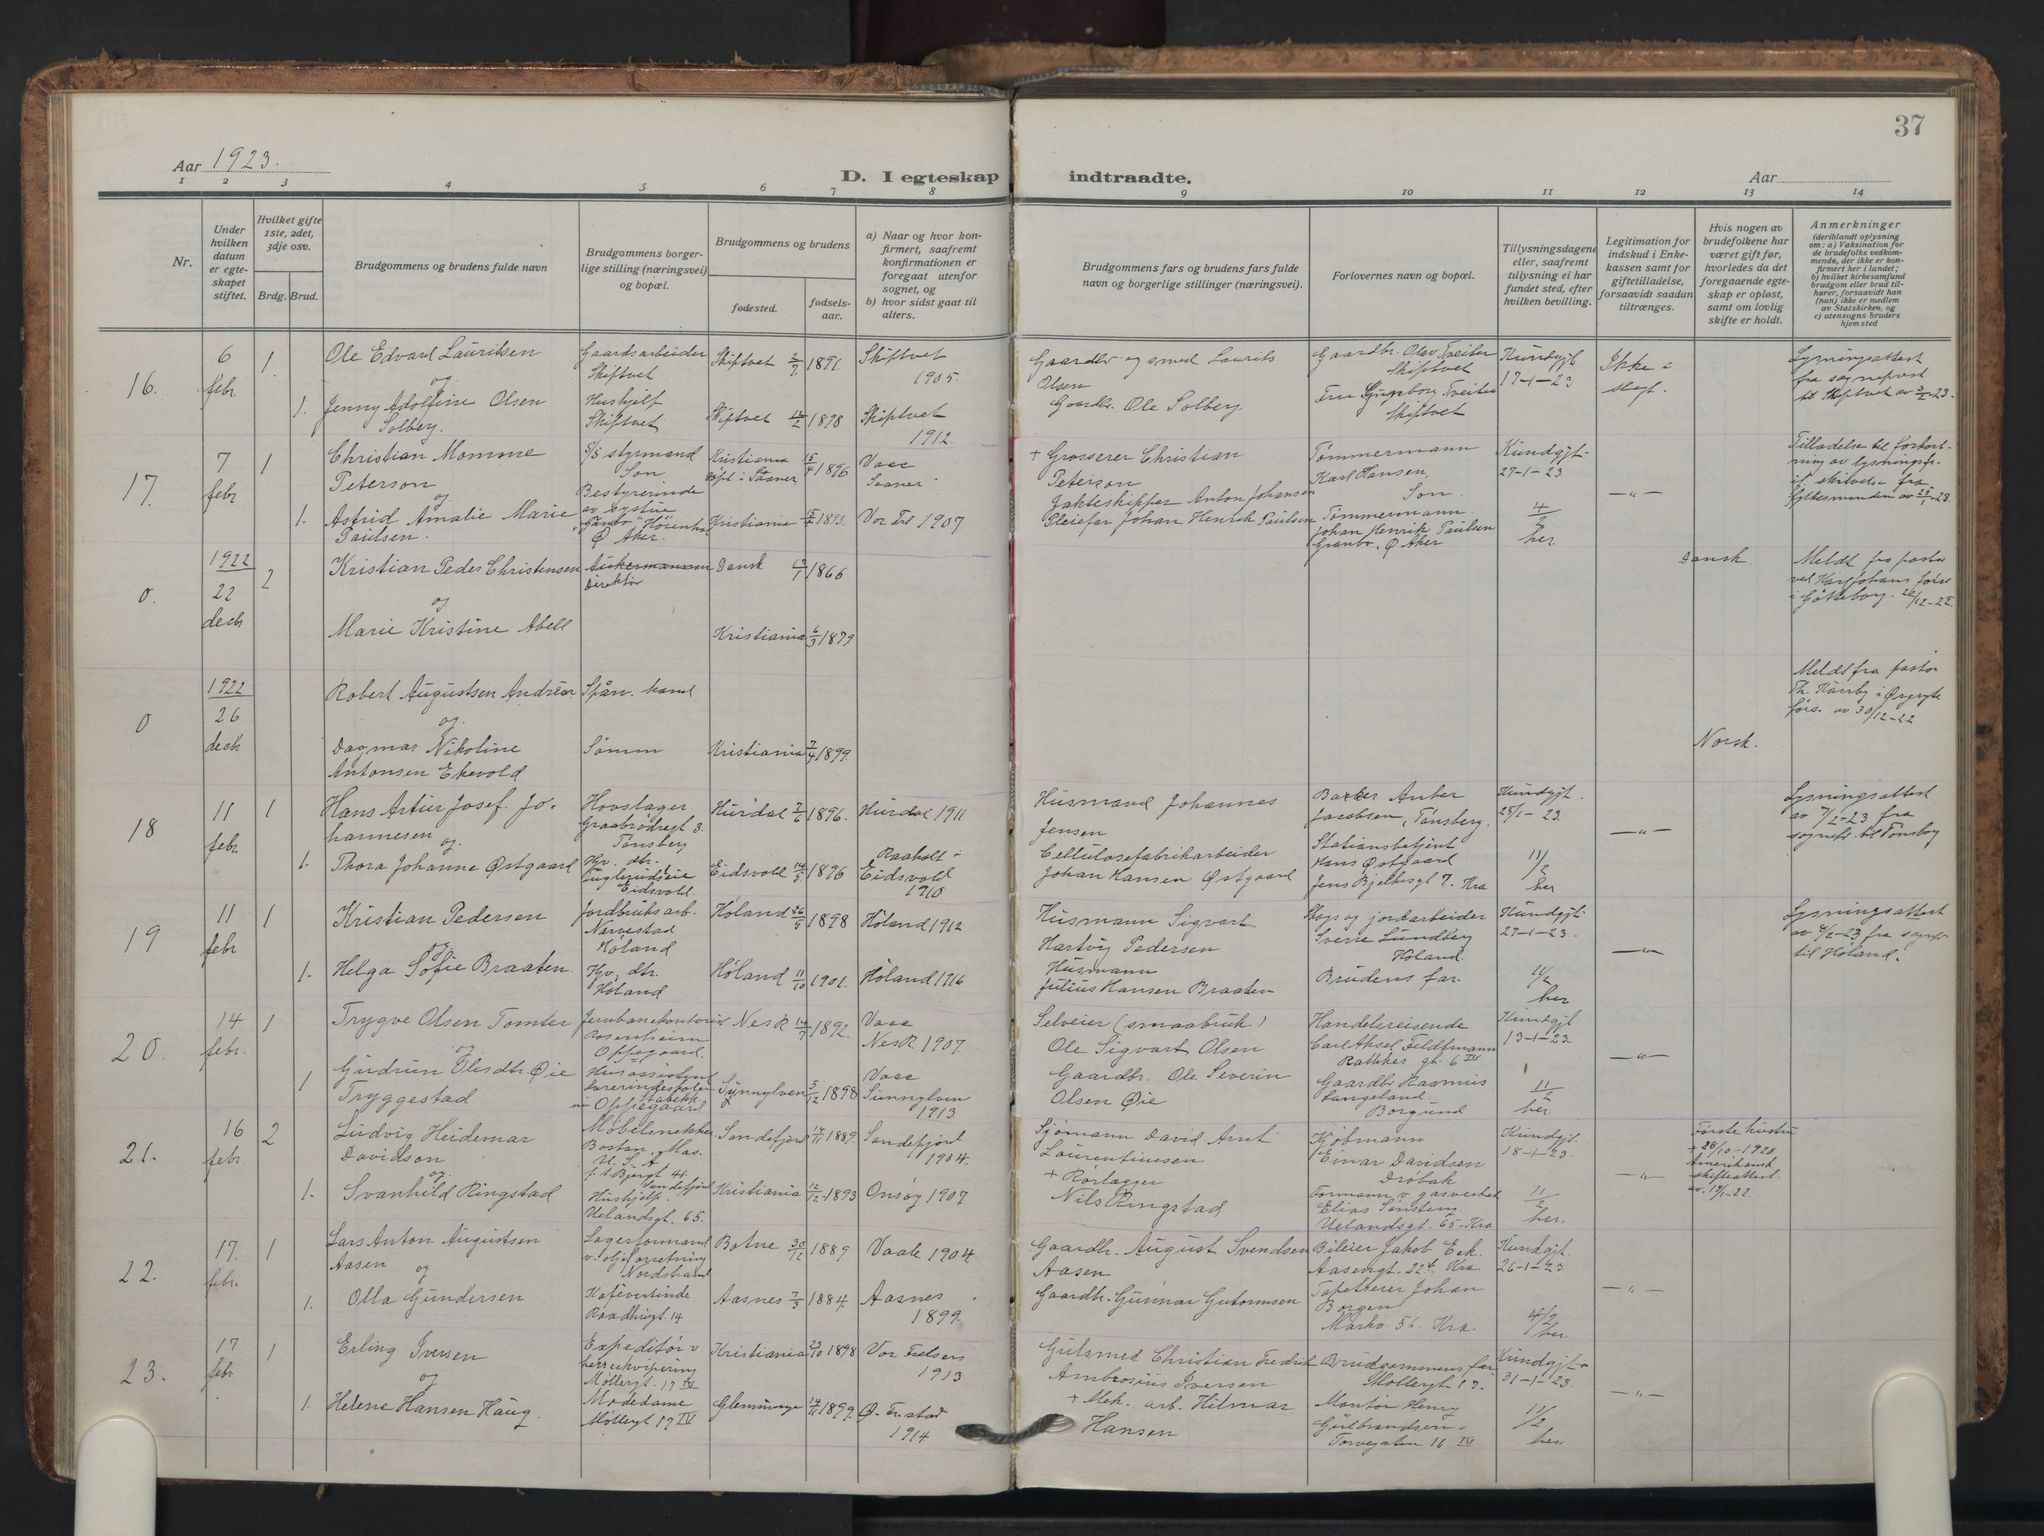 37
Aar 1923.
D. I egteskap indtraadte.
Aar
1 2 3 4 5 6 7 8 9 10 11 12 13 14
Nr.
Under hvilken datum er egteskapet stiftet.
Hvilket gifte 1ste, 2det, 3dje osv.
Brdg. Brud.
Brudgommens og brudens fulde navn
Brudgommens borgerlige stilling (næringsvei) og bopæl.
Brudgommens og brudens
fødested. fødselsaar.
a) Naar og hvor konfirmert, saafremt konfirmationen er foregaat utenfor sognet, og
b) hvor sidst gaat til alters.
Brudgommens fars og brudens fars fulde navn og borgerlige stillinger (næringsvei).
Forlovernes navn og bopæl.
Tillysningsdagene eller, saafremt tillysning ei har fundet sted, efter hvilken bevilling.
Legitimation for indskud i Enkekassen samt for giftetilladelse, forsaavidt saadan tiltrænges.
Hvis nogen av brudefolkene har været gift før, hvorledes da det foregaaende egteskap er opløst, samt om lovlig skifte er holdt.
Anmerkninger
(deriblandt oplysning om: a) Vaksination for de brudefolks vedkommende, der ikke er konfirmert her i landet; b) hvilket kirkesamfund brudgom eller brud tilhører, forsaavidt han (hun) ikke er medlem av Statskirken, og c) utensogns bruders hjemsted
16. 6 febr. 1
Ole Edvard Lauritsen
og
1. Jenny Adolfine Olsen
Solberg.
Gaardsarbeider
Skiptvet
Hushjelp
Skiptvet
Skiptvet 1891.
Skiptvet 12/2 1898
Skiptvet
1905.
Skiptvet
1912.
Gaardbr. og smed Laurits
Olsen
Gaardbr. Ole Solberg.
Gaardbr. Olav Tveiter
Skiptvet
Fru Ingeborg Tveiter
Skiptvet
Kundgjt
17-1-23
Ikke i
slegt.
Lysningsattest
fra sogneprest
til Skiptvet av 3/2-23.
17. 7 febr 1
Christian Momme
Peterson
og
1. Astrid Amalie Marie
Paulsen.
S/S styrmand
Son
Bestyrerinde
Ø Aker.
Kristiania
døpt i Saaner 15/4 1896
Kristiania 1893.
Vacc
Saaner
Vor Fr 1907.
+ Grosserer Christian
Peterson
Jakteskipper Anton Johansen
Pleiefar Johan Henrik Paulsen
Tømmermann
Karl Hansen,
Son.
Tømmermann
Johan Henrik Paulsen
Granbo. Ø Aker
Kundgjt
27-1-23
4/2
her
—"—
Tilladelse til forkortning
av lysningsfr.
fra
Fylkesmanden av 27/1-23.
0. 1922
22
decbr
2
Kristian Peder Christensen
og
Marie Kristine Abell
Direktør
Dansk 1866
Kristiania 6/3 1879
Dansk.
Meldt fra pastor
ved Karl Johans førs.
i Gøteborg. 26/12-22
0 1922
26
decbr
Robert Augustsen Andréen
og.
Dagmar Nikoline
Antonsen Ekevold
Spårv. kand
Sømm
Kristiania 7/4 1899.
Norsk.
Meldt fra pastor
Th. Kärrby i Ørgryte
førs. av 30/12-22
18 11 febr 1
Hans Artur Josef. Johannesen
og.
1. Thora Johanne Østgaard
Hovslager
Graabrødregt 3.
Tønsberg
Hjv. dtr.
Eidsvold.
Hurdal 7/6 1896.
Eidsvold 14/5 1896
Hurdal 1911
Raaholt i
Eidsvold
1910
Husmand Johannes
Jensen
Cellulosefabrikarbeider
Johan Hansen Østgaard
Baker Anker
Jacobsen, Tønsberg.
Stationsbetjent
Hans Østgaard
Jens Bjelkesgt 7. Kra
Kundgjt.
25/1-23.
11/2
her
—"—
Lysningsattest
av 7/2-23 fra
sognepr. til Tønsbg
19 11 febr 1
Kristian Pedersen
og
1. Helga Sofie Braaten.
Jordbruksarb.
Nævestad
Høland
Hjv. dtr.
Høland
Høland 26/5 1898
Høland 11/10 1901.
Høland 1912
Høland 1916
Husmann Sigvart
Hartvig Pedersen
Husmann
Julius Hansen Braaten
Skog og jordarbeider
Sverre Lundberg
Høland.
Brudens far.
Kundgjt.
27-1-23.
11/2
her
—"—
Lysningsattest
av 9/2-23 fra sognepr
til Høland.
20. 14 febr. 1
Trygve Olsen Tomter
og
1 Gudrun Olesdtr. Øie
Tryggestad
Jernbanekontorist
Rosenheim
Oppegaard.
Husassistent
Lærerindeskolen
Stabekk
nu Oppegaard
Nes R 14/7 1892.
Synnylven 5/12 1898
Vacc
Nes R. 1907.
Vacc
Sunnylven
1913
Selveier (smaabruk)
Ole Sigvart Olsen
Gaardbr. Ole Severin
Olsen Øie
Handelsreisende
Carl Aksel Feldtmann
Ratkkes gt. 6 IV
Gaardbr Rasmus
Langeland
Borgund
Kundgjt
13-1-23
11/2
her.
—"—
21. 16 febr 2
Ludvig Heidemar
Davidson
og.
1. Svanhild Ringstad
Møbelsnekker
Boston, Mas.
U.S.A
Sandefjord
Hushjelp.
Uelandsgt. 65.
Sandefjord 14/11 1889.
Kristiania 12/12 1893
Sandefjord
1904.
Onsøy 1907
Sjømann David Arnt
Laurentiussen
+ Rørlægger
Nils Ringstad
Kjøbmann
Einar Davidsen
Drøbak
Formann v. gasverket
Elias Tønsberg
Uelandsgt. 65. Kra
Kundgjt.
18-1-23.
11/2
her.
—"—
Første hustru
+ 28/10-1920
Amerikansk
skifteattest
av. 17/1-22.
22. 17. febr. 1
Lars Anton Augustsen
Aasen og
1. Olla Gundersen
Lagerformand
v. oljeforretning
Nordstrand
Kafévertinde
Raadhusgt. 14
Botne 30/12 1889
Aasnes 7/3 1884.
Vaale 1904.
Aasnes
1899.
Gaardbr. August Svendsen
Aasen
Gaardbr. Gunnar Gutormsen
Bileier Jakob Eek.
Aasengt. 22b. Kra.
Tapetserer Johan
Borgen
Markv. 56. Kra.
Kundgjt.
26-1-23
4/2
her.
—"—
23. 17 febr 1
Erling Iversen
og
1. Helene Hansen Haug.
Expeditør v
herreekvipering
Møllergt. 17 IV
Modedame
Møllergt 17 IV
Kristiania 23/10 1898
Glemminge 14/11 1899.
Vor Frelsers
1913
Ø. Fr.stad
1914
Gulsmed Christian Fredrik
Ambrosius Iversen
+ Mek. arb. Hilmar
Hansen
Brudgommens far
Møllergt 17.
Montør Henry
Gulbrandsen
Torvegaten 16 IV
Kundgjt
31-1-23.
11/2
her.
—"—